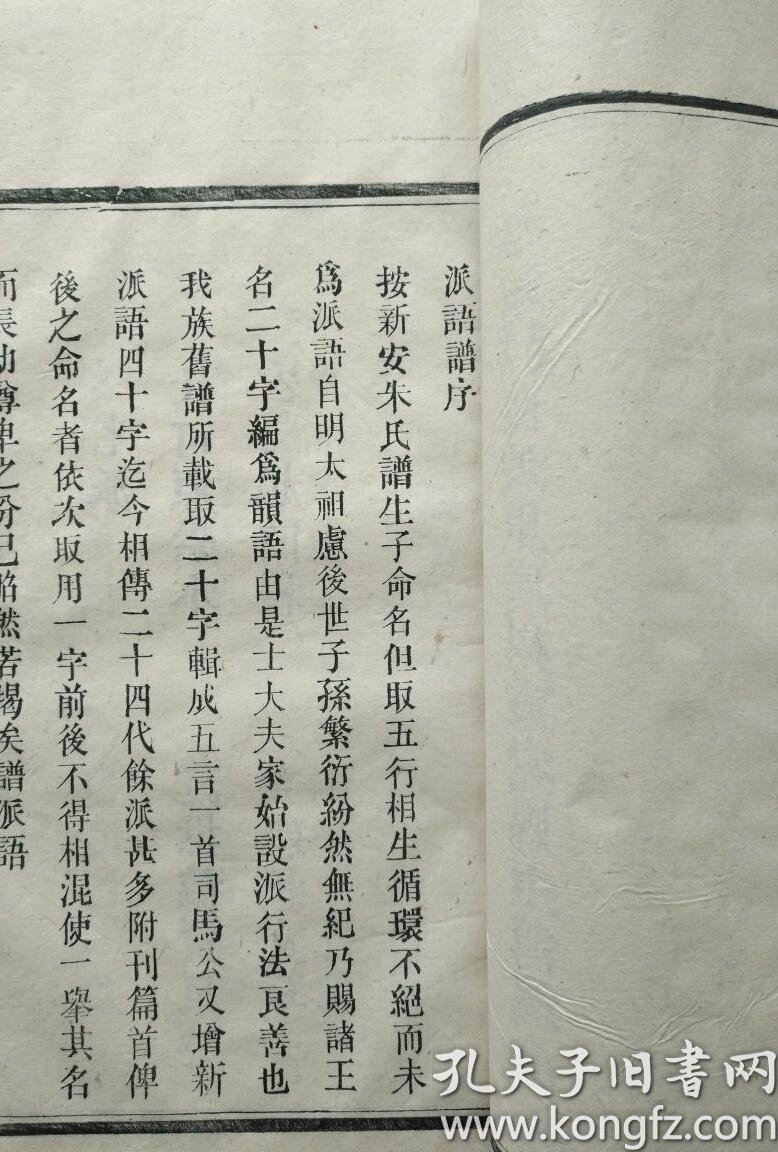 派語譜序
按新安朱氏譜生子命名但取五行相生循環不絕而未
爲派語自明太祖慮後世子孫繁衍紛然無紀乃賜諸王
名二十字編爲韻語由是士大夫家始設派行法良善也
我族舊譜所載取二十字輯成五言一首司馬公又增新
派語四十字迄今相傳二十四代餘派甚多附刊篇首俾
後之命名者依次取用一字前後不得相混使一舉其名
而長幼尊卑之分已昭然若揭矣譜派語
孔夫子旧書网
www.kongfz.com